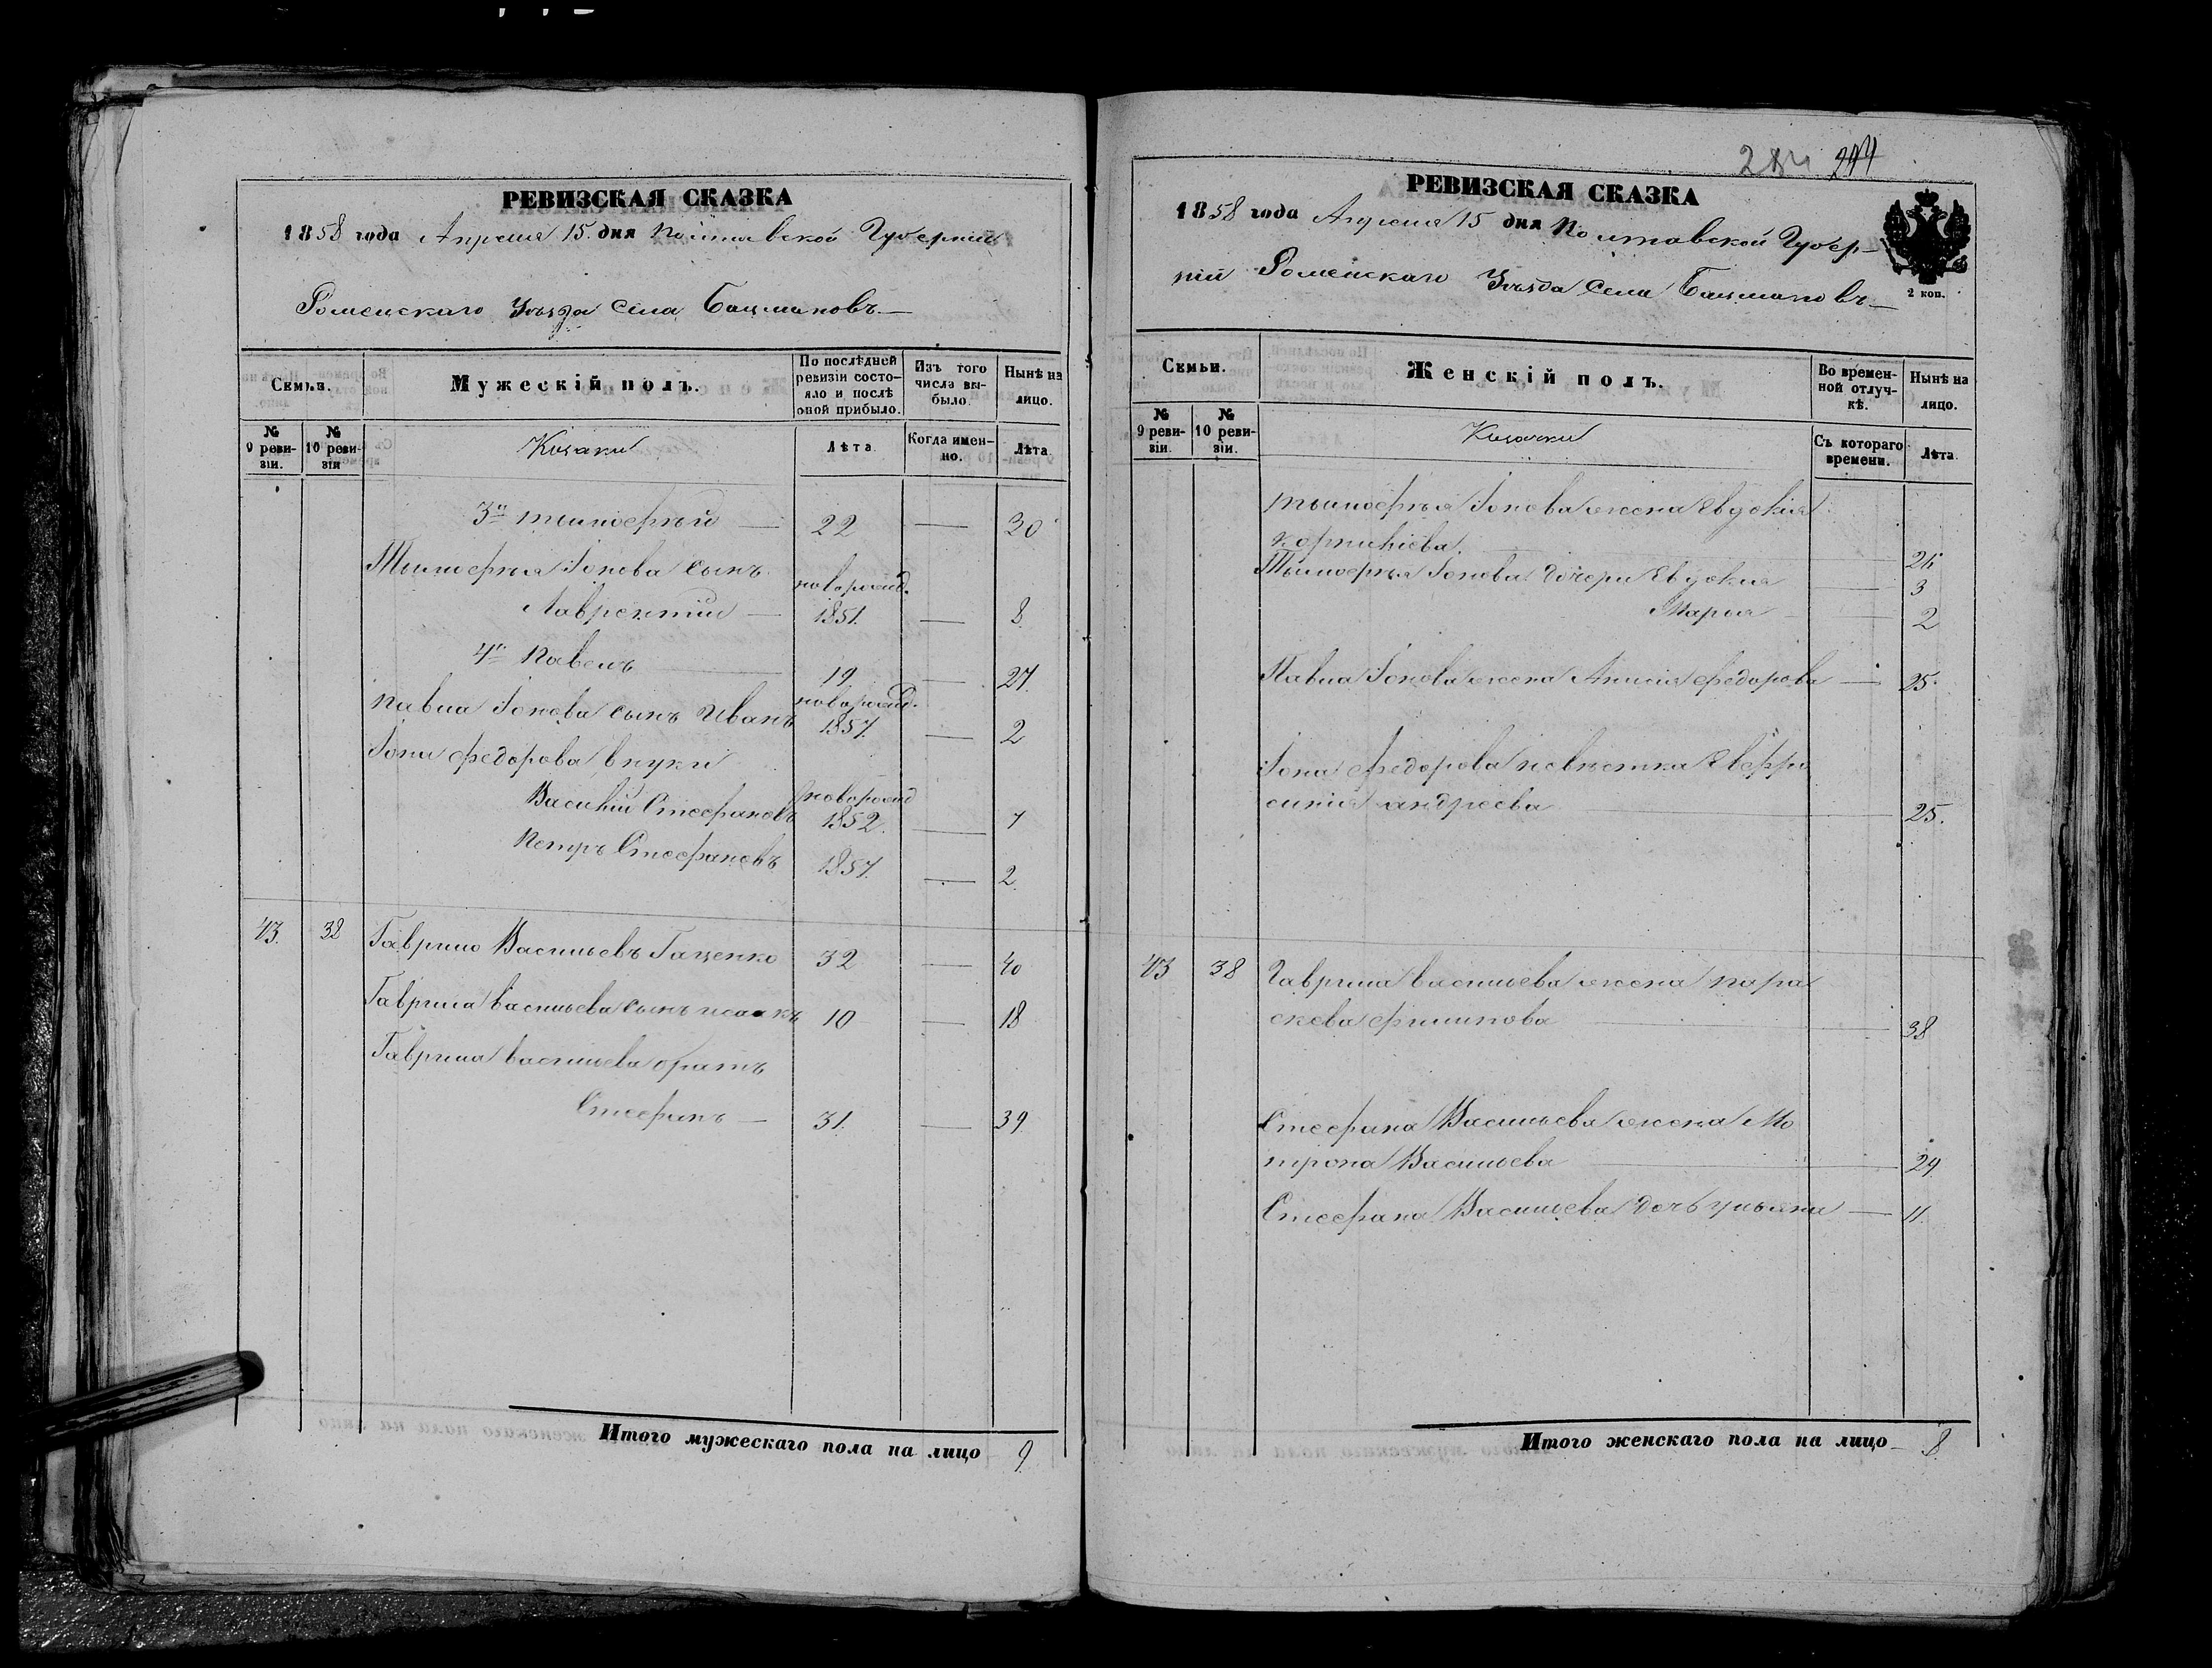 284 244
РЕВИЗСКАЯ СКАЗКА
1858 года Апреля 15 дня Полтавской Губерніи
Роменскаго Уѣзда Села Бацмановъ
Семьи.
Мужескій полъ.
По послѣдней ревизіи состояло и послѣ оной прибыло.
Изъ того числа выбыло.
Нынѣ на лицо.
№ 9 ревизіи.
№ 10 ревизіи
Козаки
Лѣта
Когда именно.
Лѣта.
3й Тимофѣй — 22 — 30
Тимофѣя Іонова сынъ новорожд.
Лаврентій — 1851. — 8
4й Павелъ 19 — 27.
Павла Іонова сынъ Иванъ новорожд. 1857. — 2
Іоны Федорова внуки
Василій Стефановъ новорожд 1852. — 7
Петръ Стефановъ 1857. — 2
43. 38 Гаврило Васильевъ Гаценко 32 — 40
Гаврила Васильева сынъ Исаакъ 10 — 18
Гаврила Васильева братъ
Стефанъ — 31. — 39
Итого мужескаго пола на лицо 9.
РЕВИЗСКАЯ СКАЗКА
1858 года Апреля 15 дня Полтавской Губер-
ніи Роменскаго Уѣзда Села Бацмановъ
2 коп.
Семьи.
Женскій полъ.
Во временной отлучкѣ.
Нынѣ на лицо.
№ 9 ревизіи.
№ 10 ревизіи.
Козачки
Съ котораго времени.
Лѣта.
Тимофѣя Іонова жена Евдокія
Корниліева. 26
Тимофѣя Іонова дочери Евдокія — 3
Марья — 2
Павла Іонова жена Анисія Федорова — 25.
Іоны Федорова невѣстка Евфро
синія Андреева 25.
43 38 Гаврила Васильева жена Пара
скева Филипова 38
Стефана Васильева жена Мо
трона Васильева 29
Стефана Васильева дочь Ульяна — 11.
Итого женскаго пола на лицо 8.